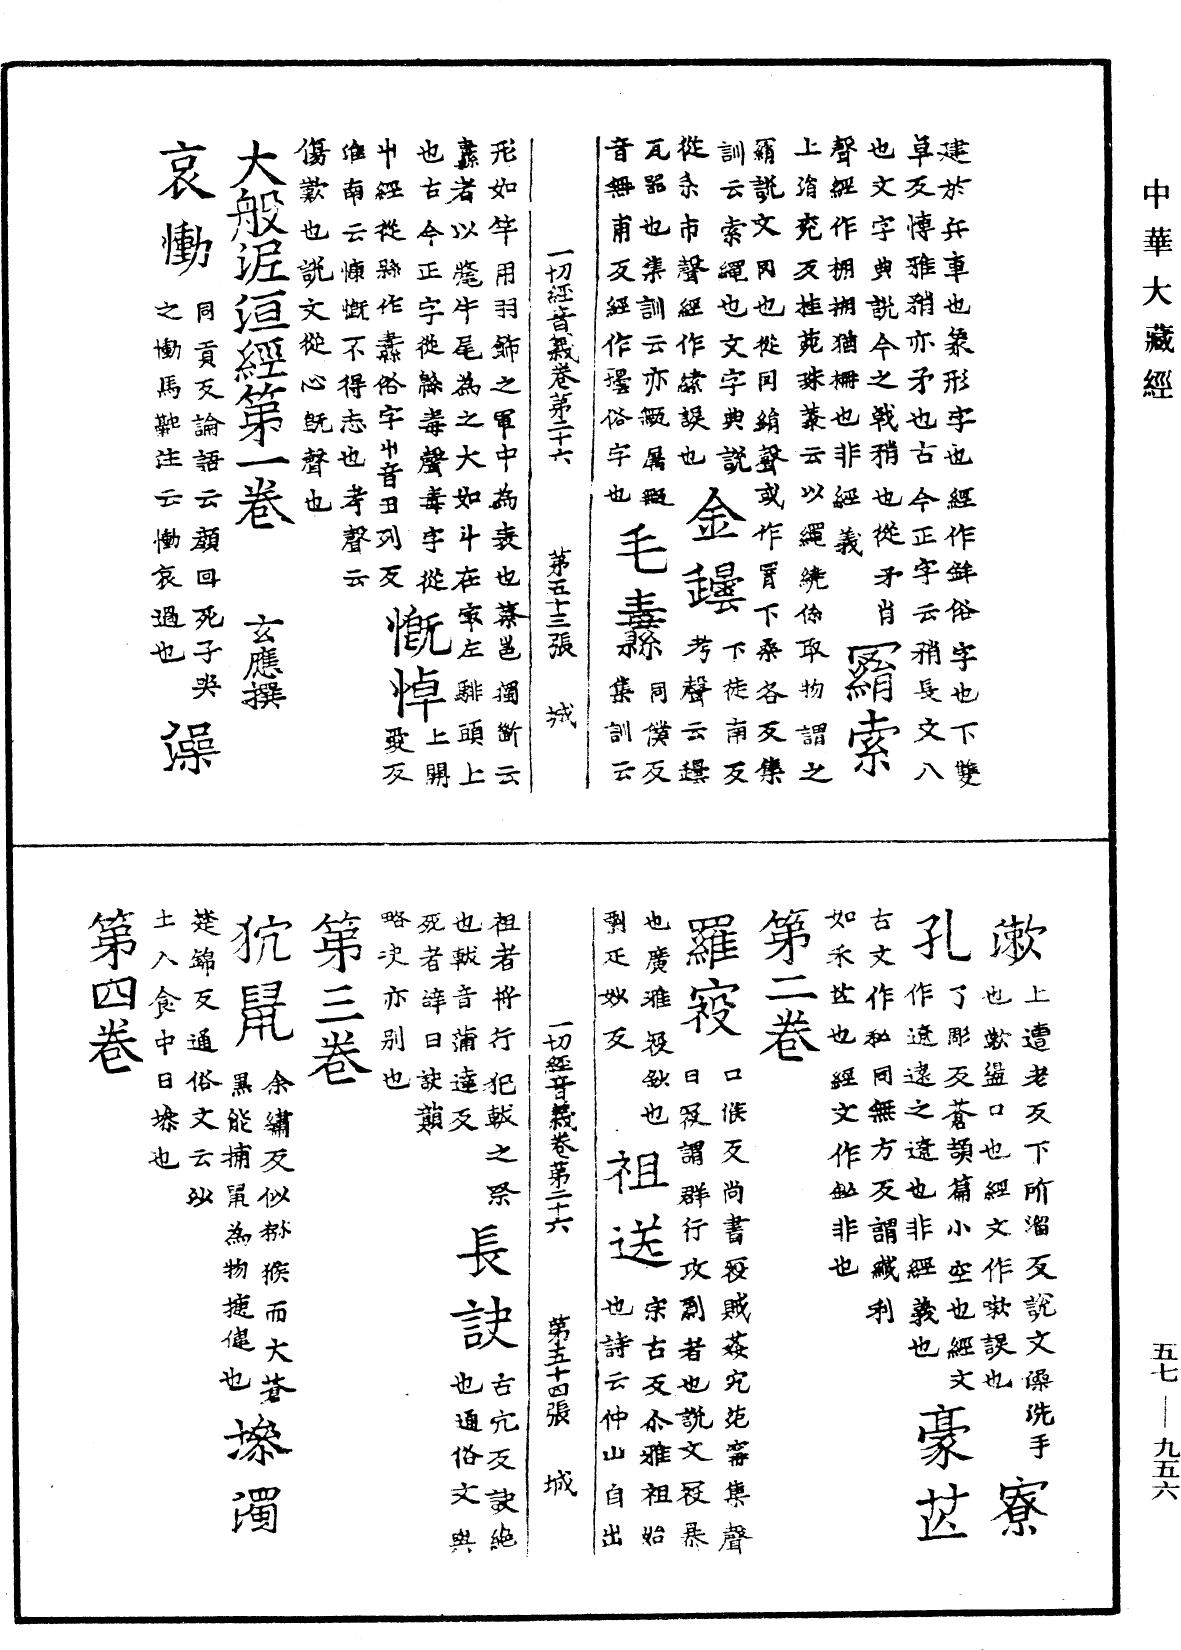 中華大藏經
建於兵車也象形字也經作鉾俗字也下雙
卓反博雅矟亦矛也古今正字云矟長丈八
也文字典說今之戟矟也從矛肖
聲經作棚棚猶柵也非經義
罥索
上消兖反桂苑珠叢云以繩繞係取物謂之
罥說文罔也從罔絹聲或作罥下桑各反集
訓云索繩也文字典說
從糸市聲經作繠誤也
金罎
考聲云罎
下徒南反
瓦器也集訓云亦甌屬甌
音無甫反經作壜俗字也
毛纛
同僕反
集訓云
一切經音義卷第二十六 第五十三張 城
形如竿用羽飾之軍中為表也蔡邕獨斷云
纛者以氂牛尾為之大如斗在㝡左騑頭上
也古今正字從縣毒聲毒字從
屮經從縣作纛俗字屮音丑列反
慨悼
上開
愛反
淮南云慷慨不得志也考聲云
傷歎也說文從心旣聲也
大般泥洹經第一卷 玄應撰
哀慟
同貢反論語云顏回死子哭
之慟馬融注云慟哀過也
澡
漱
上遭老反下所溜反說文澡洗手
也漱盪口也經文作嗽誤也
寮
孔
了彫反蒼頡篇小空也經文
作遼遠之遼也非經義也
豪芒
古文作𥝢同無方反謂纖利
如禾芒也經文作䤣非也
第二卷
羅㝮
口候反尚書㝮賊姦宄范甯集聲
曰㝮謂群行攻剽者也說文㝮暴
也廣雅㝮鈔也
剽疋妙反
祖送
宗古反介雅祖始
也詩云仲山自出
一切經音義卷第二十六 第五十四張 城
祖者將行犯軷之祭
也軷音蒲達反
長訣
古穴反訣絕
也通俗文與
死者辭曰訣顛
略決亦別也
第三卷
狖鼠
余繡反似獼猴而大蒼
黑能捕鼠為物捷健也
墋濁
楚錦反通俗文云沙
土入食中曰墋也
第四卷
五七—九五六